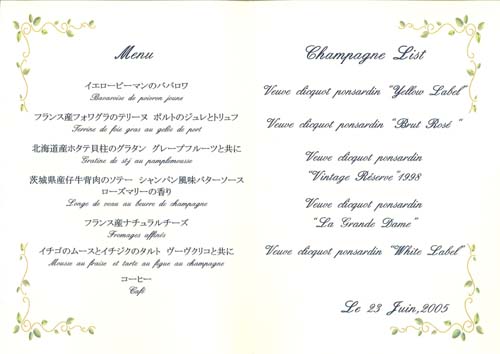 Menu
イエローピーマンのババロワ
Bavaroise de poivron jaune
フランス産フォワグラのテリーヌ ポルトのジュレとトリュフ
Terrine de foie gras au gelée de port
北海道産ホタテ貝柱のグラタン グレープフルーツと共に
Gratine de stj au pamplemousse
茨城県産仔牛背肉のソテー シャンパン風味バターソース
ローズマリーの香り
Longe de veau au beurre de champagne
フランス産ナチュラルチーズ
Fromages affinés
イチゴのムースとイチジクのタルト ヴーヴクリコと共に
Mousse au fraise et tarte au figue au champagne
コーヒー
Café
Champagne List
Veuve clicquot ponsardin "Yellow Label"
Veuve clicquot ponsardin "Brut Rosé "
Veuve clicquot ponsardin
"Vintage Réserve"1998
Veuve clicquot ponsardin
"La Grande Dame"
Veuve clicquot ponsardin "White Label"
Le 23 Juin,2005